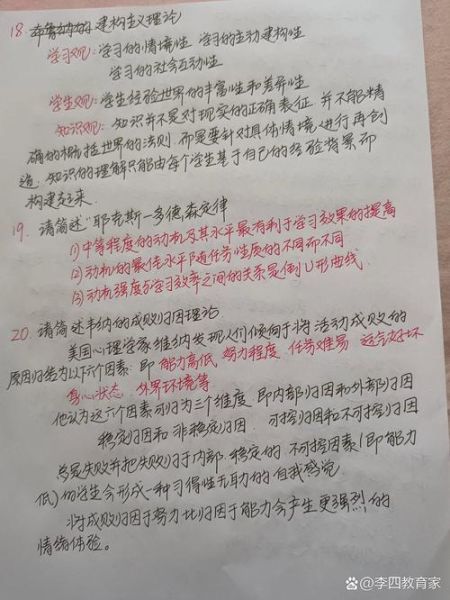 18. 布鲁纳的建构主义理论
学习观: 学习的情境性 学习的主动建构性
学习的社会互动性
学生观: 学生经验世界的丰富性和差异性
知识观: 知识并不是对现实的正确表征, 并不能精
确的概括世界的法则, 而是要针对具体情境进行再创
造. 知识的理解只能由每个学生基于自己的经验背景而
构建起来.
19. 请简述"耶克斯—多德森定律
(1) 中等程度的动机及其水平最有利于学习效果的提高
(2) 动机的最佳水平随任务性质的不同而不同
(3) 动机强度与学习效率之间的关系是倒U形曲线.
20. 请简述韦纳的成败归因理论
美国心理学家维纳发现人们倾向于将活动成败的
原因归结为以下六个因素: 即 能力高低 努力程度、任务难易 运气好坏
身心状态、外界环境等
他认为这六个因素可归为三个维度 即内部归因和外部归因
稳定归因和非稳定归因. 可控归因和不可控归因
总是失败并把失败归于内部 稳定的 不可控因素(即能力
低)的学生会形成一种习得性无助的自我感觉
将成败归因于努力比归因于能力会产生更强烈的
情绪体验。
@李四教育家